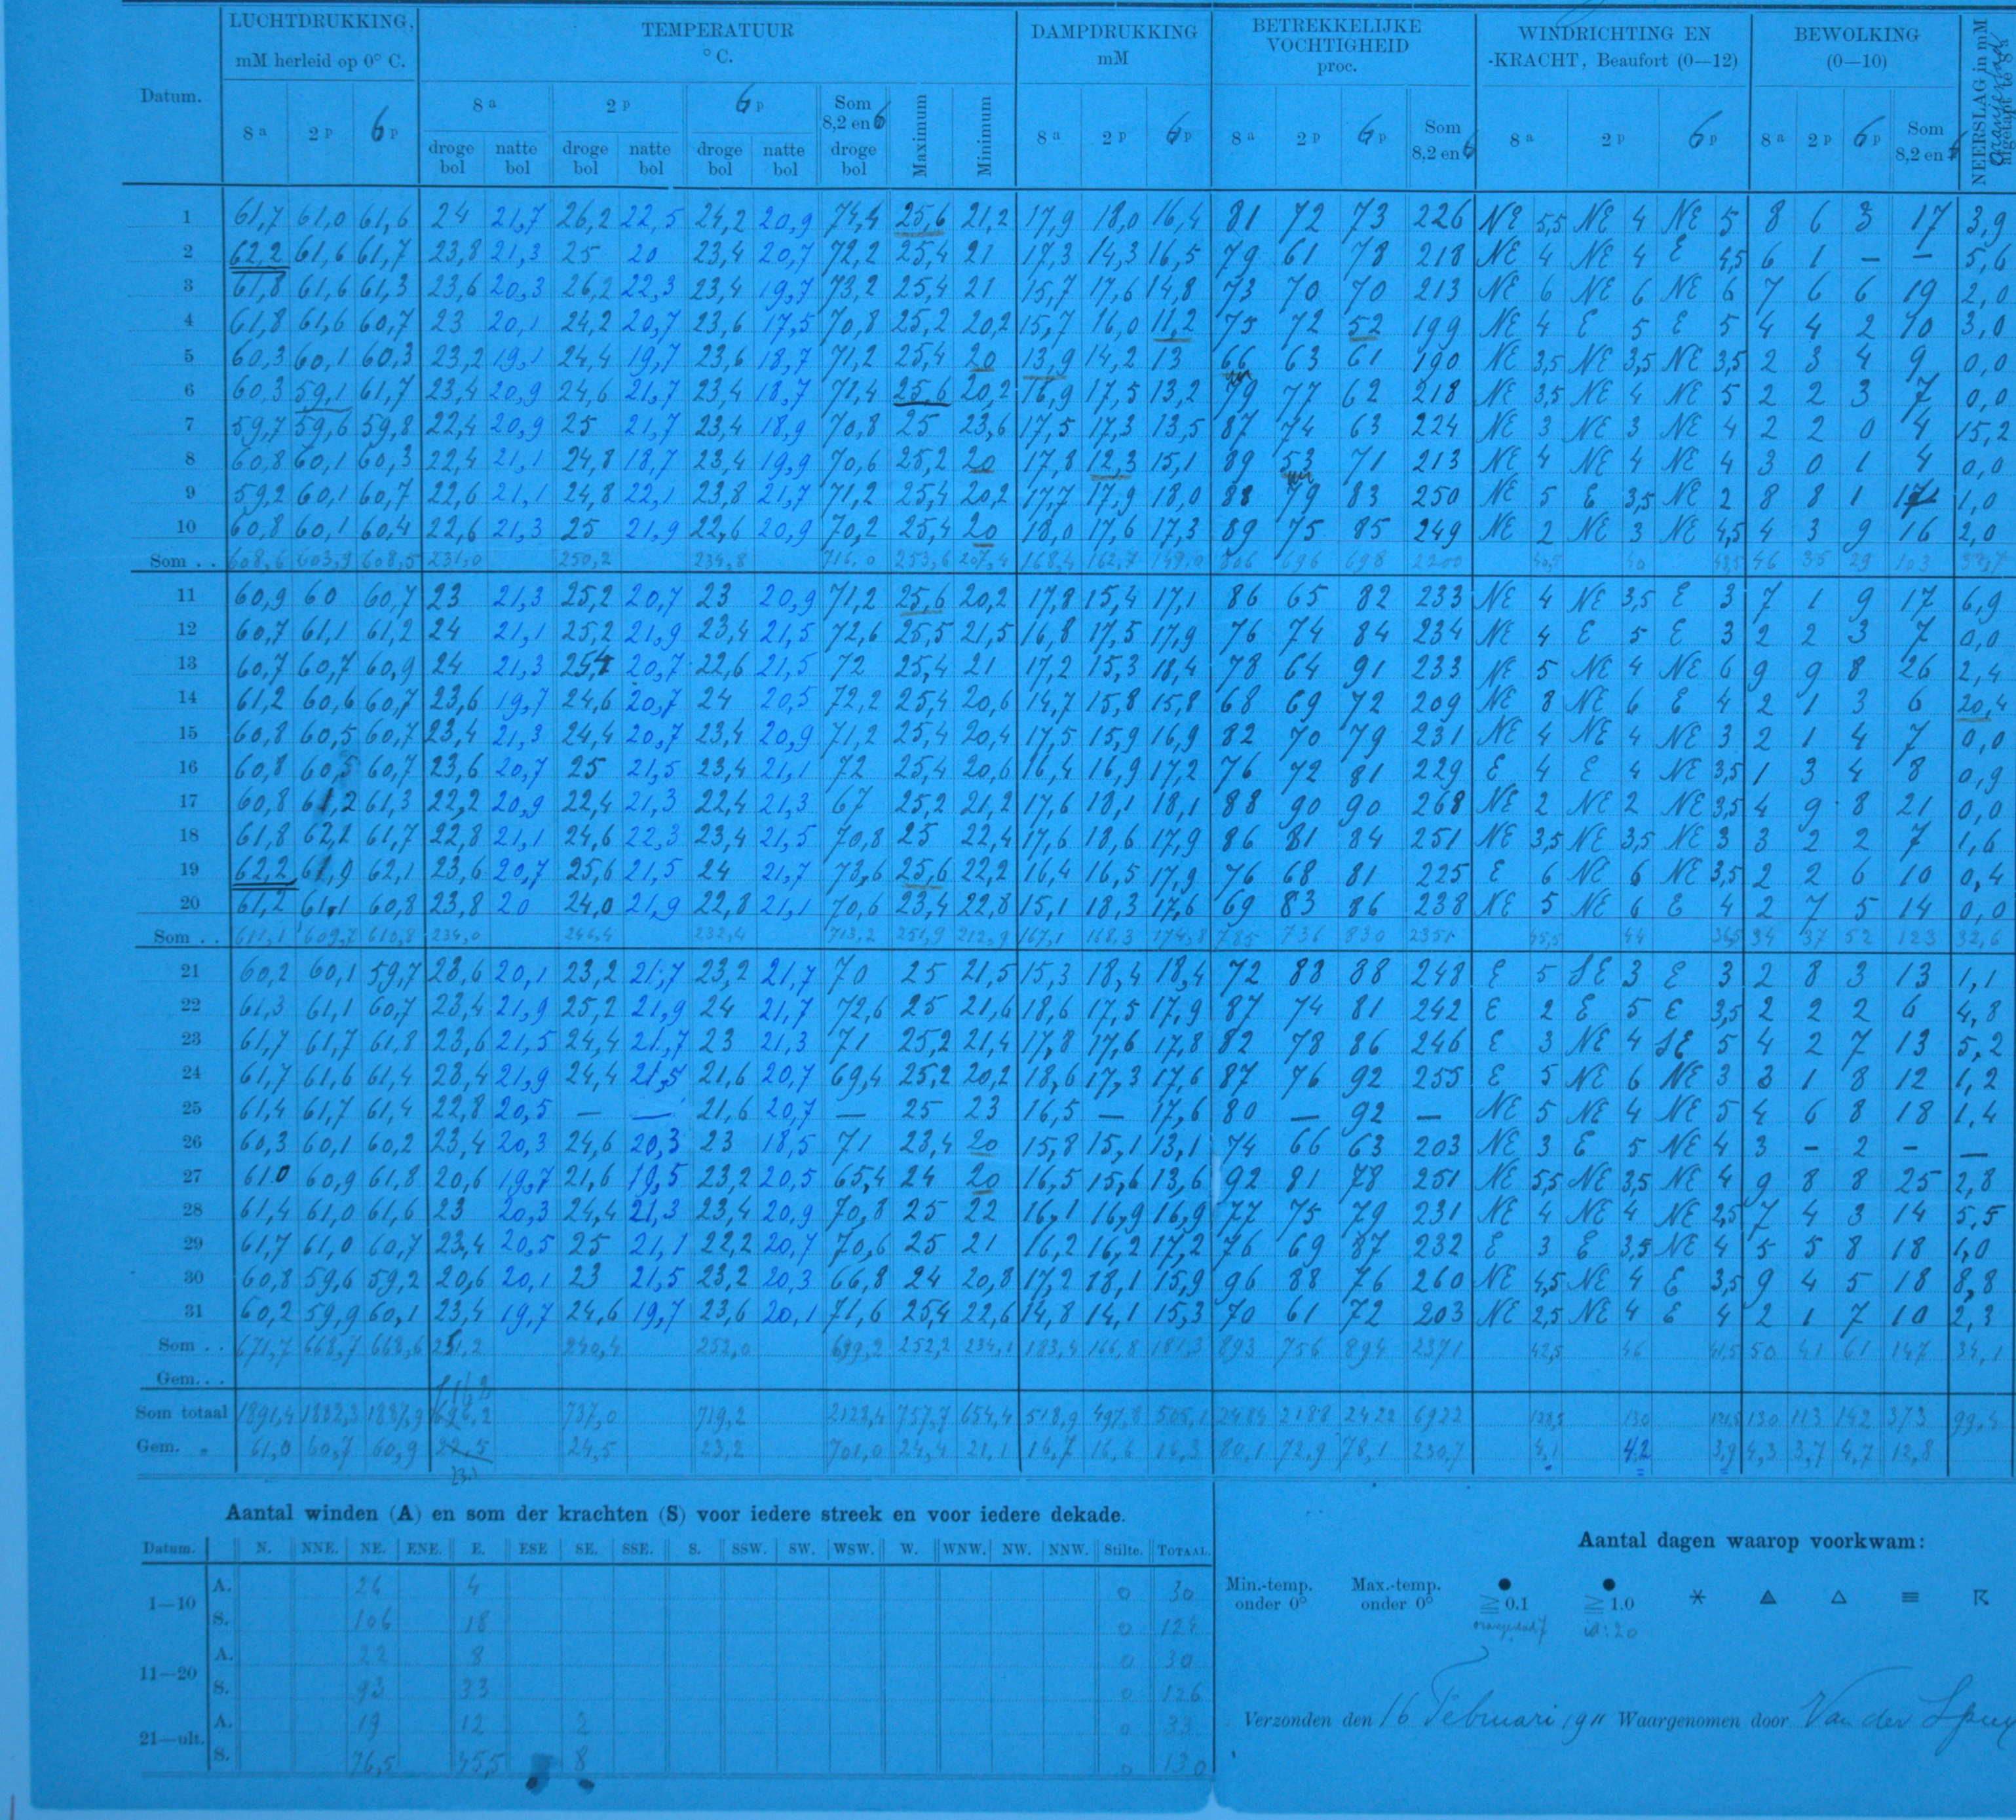 LUCHTDRUKKING, mM herleid op 0° C. TEMPERATUUR ° C. DAMPDRUKKING mM BETREKKELIJKE VOCHTIGHEID proc. WINDRICHTING EN -KRACHT, Beaufort (0—12) BEWOLKING (0—10) NEERSLAG in mM
Datum. 8a 2p 6p 8a 2p 6p Som 8,2 en 6 Maximum Minimum 8a 2p 6p 8a 2p 6p Som 8,2 en 6 8a 2p 6p 8a 2p 6p Som 8,2 en 6
droge bol natte bol droge bol natte bol droge bol natte bol droge bol
1 61,7 61,0 61,6 24 21,7 26,2 22,5 24,2 20,9 74,4 25,6 21,2 17,9 18,0 16,4 81 72 73 226 NE 5,5 NE 4 NE 5 8 6 3 17 3,9
2 62,2 61,6 61,7 23,8 21,3 25 20 23,4 20,7 72,2 25,4 21 17,3 14,3 16,5 79 61 78 218 NE 4 NE 4 E 4,5 6 1 — — 5,6
3 61,8 61,6 61,3 23,6 20,3 26,2 22,3 23,4 19,7 73,2 25,4 21 15,7 17,6 14,8 73 70 70 213 NE 6 NE 6 NE 6 7 6 6 19 2,0
4 61,8 61,6 60,7 23 20,1 24,2 20,7 23,6 17,5 70,8 25,2 20,2 15,7 16,0 11,2 75 72 52 199 NE 4 E 5 E 5 4 4 2 10 3,0
5 60,3 60,1 60,3 23,2 19,1 24,4 19,7 23,6 18,7 71,2 25,4 20 13,9 14,2 13 66 63 61 190 NE 3,5 NE 3,5 NE 3,5 2 3 4 9 0,0
6 60,3 59,1 61,7 23,4 20,9 24,6 21,7 23,4 18,7 71,4 25,6 20,2 16,9 17,5 13,2 79 77 62 218 NE 3,5 NE 4 NE 5 2 2 3 7 0,0
7 59,7 59,6 59,8 22,4 20,9 25 21,7 23,4 18,9 70,8 25 23,6 17,5 17,3 13,5 87 74 63 224 NE 3 NE 3 NE 4 2 2 0 4 15,2
8 60,8 60,1 60,3 22,4 21,1 24,8 18,7 23,4 19,9 70,6 25,2 20 17,8 12,3 15,1 89 53 71 213 NE 4 NE 4 NE 4 3 0 1 4 0,0
9 59,2 60,1 60,7 22,6 21,1 24,8 22,1 23,8 21,7 71,2 25,4 20,2 17,7 17,9 18,0 88 79 83 250 NE 5 E 3,5 NE 2 8 8 1 17 1,0
10 60,8 60,1 60,4 22,6 21,3 25 21,9 22,6 20,9 70,2 25,4 20 18,0 17,6 17,3 89 75 85 249 NE 2 NE 3 NE 4,5 4 3 9 16 2,0
Som . . 608,6 603,9 608,5 231,0 250,2 234,8 716,0 253,6 207,4 168,4 162,7 149,0 806 696 698 2200 40,5 40 43,5 46 35 29 103
11 60,9 60 60,7 23 21,3 25,2 20,7 23 20,9 71,2 25,6 20,2 17,8 15,4 17,1 86 65 82 233 NE 4 NE 3,5 E 3 7 1 9 17 6,9
12 60,7 61,1 61,2 24 21,1 25,2 21,9 23,4 21,5 72,6 25,5 21,5 16,8 17,5 17,9 76 74 84 234 NE 4 E 5 E 3 2 2 3 7 0,0
13 60,7 60,7 60,9 24 21,3 25,4 20,7 22,6 21,5 72 25,4 21 17,2 15,3 18,4 78 64 91 233 NE 5 NE 4 NE 6 9 9 8 26 2,4
14 61,2 60,6 60,7 23,6 19,7 24,6 20,7 24 20,5 72,2 25,4 20,6 14,7 15,8 15,8 68 69 72 209 NE 8 NE 6 E 4 2 1 3 6 20,4
15 60,8 60,5 60,7 23,4 21,3 24,4 20,7 23,4 20,9 71,2 25,4 20,4 17,5 15,9 16,9 82 70 79 231 NE 4 NE 4 NE 3 2 1 4 7 0,0
16 60,8 60,5 60,7 23,6 20,7 25 21,5 23,4 21,1 72 25,4 20,6 16,4 16,9 17,2 76 72 81 229 E 4 E 4 NE 3,5 1 3 4 8 0,9
17 60,8 61,2 61,3 22,2 20,9 22,4 21,3 22,4 21,3 67 25,2 21,2 17,6 18,1 18,1 88 90 90 268 NE 2 NE 2 NE 3,5 4 9 8 21 0,0
18 61,8 62,1 61,7 22,8 21,1 24,6 22,3 23,4 21,5 70,8 25 22,4 17,6 18,6 17,9 86 81 84 251 NE 3,5 NE 3,5 NE 3 3 2 2 7 1,6
19 62,2 61,9 62,1 23,6 20,7 25,6 21,5 24 21,7 73,6 25,6 22,2 16,4 16,5 17,9 76 68 81 225 E 6 NE 6 NE 3,5 2 2 6 10 0,4
20 61,2 61,1 60,8 23,8 20 24,0 21,9 22,8 21,1 70,6 23,4 22,8 15,1 18,3 17,6 69 83 86 238 NE 5 NE 6 E 4 2 7 5 14 0,0
Som . . 611,1 609,7 610,8 234,0 246,4 232,4 713,2 251,9 212,9 167,1 168,3 174,8 785 736 830 2351 45,5 44 36,5 34 37 52 123 32,6
21 60,2 60,1 59,7 23,6 20,1 23,2 21,7 23,2 21,7 70 25 21,5 15,3 18,4 18,4 72 88 88 248 E 5 SE 3 E 3 2 8 3 13 1,1
22 61,3 61,1 60,7 23,4 21,9 25,2 21,9 24 21,7 72,6 25 21,6 18,6 17,5 17,9 87 74 81 242 E 2 E 5 E 3,5 2 2 2 6 4,8
23 61,7 61,7 61,8 23,6 21,5 24,4 21,7 23 21,3 71 25,2 21,4 17,8 17,6 17,8 82 78 86 246 E 3 NE 4 SE 5 4 2 7 13 5,2
24 61,7 61,6 61,4 23,4 21,9 24,4 21,5 21,6 20,7 69,4 25,2 20,2 18,6 17,3 17,6 87 76 92 255 E 5 NE 6 NE 3 3 1 8 12 1,2
25 61,4 61,7 61,4 22,8 20,5 — — 21,6 20,7 — 25 23 16,5 — 17,6 80 — 92 — NE 5 NE 4 NE 5 4 6 8 18 1,4
26 60,3 60,1 60,2 23,4 20,3 24,6 20,3 23 18,5 71 23,4 20 15,8 15,1 13,1 74 66 63 203 NE 3 E 5 NE 4 3 — 2 — —
27 61.0 60,9 61,8 20,6 19,7 21,6 19,5 23,2 20,5 65,4 24 20 16,5 15,6 13,6 92 81 78 251 NE 5,5 NE 3,5 NE 4 9 8 8 25 2,8
28 61,4 61,0 61,6 23 20,3 24,4 21,3 23,4 20,9 70,8 25 22 16,1 16,9 16,9 77 75 79 231 NE 4 NE 4 NE 2,5 7 4 3 14 5,5
29 61,7 61,0 60,7 23,4 20,5 25 21,1 22,2 20,7 70,6 25 21 16,2 16,2 17,2 76 69 87 232 E 3 E 3,5 NE 4 5 5 8 18 1,0
30 60,8 59,6 59,2 20,6 20,1 23 21,5 23,2 20,3 66,8 24 20,8 17,2 18,1 15,9 96 88 76 260 NE 4,5 NE 4 E 3,5 9 4 5 18 8,8
31 60,2 59,9 60,1 23,4 19,7 24,6 19,7 23,6 20,1 71,6 25,4 22,6 14,8 14,1 15,3 70 61 72 203 NE 2,5 NE 4 E 4 2 1 7 10 2,3
Som . . 671,7 668,7 668,6 251,2 240,4 252,0 699,2 252,2 234,1 183,4 166,8 181,3 893 756 894 2371 42,5 46 41,5 50 41 61 147 34,1
Gem. . .
Som totaal 1891,4 1882,3 1887,9 737,0 719,2 2128,4 757,7 654,4 518,9 497,8 505,1 2484 2188 2422 6922 128,5 130 121,5 130 113 142 373 99,4
Gem. „ 61,0 60,7 60,9 22,5 24,5 23,2 701,0 24,4 21,1 16,7 16,6 16,3 80,1 72,9 78,1 230,7 4,1 4,2 3,9 4,3 3,7 4,7 12,8
Aantal winden (A) en som der krachten (S) voor iedere streek en voor iedere dekade.
Datum. N. NNE. NE. ENE. E. ESE SE. SSE. S. SSW. SW. WSW. W. WNW. NW. NNW. Stilte. TOTAAL.
1—10 A. 26 4 0 30
S. 106 18 0 124
11—20 A. 22 8 0 30
S. 93 33 0 126
21—ult. A. 19 12 2 0 33
S. 76,5 45,5 8 0 130
Aantal dagen waarop voorkwam:
Min.-temp. onder 0° Max.-temp. onder 0° ● ≧ 0.1 ● ≧ 1.0
id: 20
Verzonden den 16 Februari 1911 Waargenomen door Van der